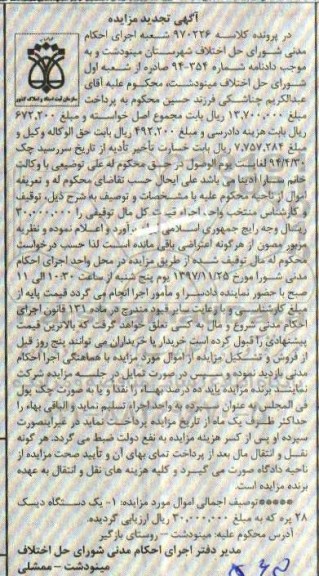 آگهی تجدید مزایده
در پرونده کلاسه ۹۷۰۲۲۶ شعبه اجرای احکام
مدنی شورای حل اختلاف شهرستان مینودشت و به
موجب دادنامه شماره ۳۵۴-۹۴ صادره از شعبه اول
شورای حل اختلاف مینودشت، محکوم علیه آقای
عبدالکریم چناشکی فرزند حسین محکوم به پرداخت
مبلغ ۱۳,۷۰۰,۰۰۰ ریال بابت مجموع اصل خواسته و مبلغ ۶۷۲,۲۰۰
ریال بابت هزینه دادرسی و مبلغ ۴۹۲,۲۰۰ ریال بابت حق الوکاله وکیل و
مبلغ ۷,۷۵۷,۲۸۴ ریال بابت خسارت تأخیر تأدیه از تاریخ سررسید چک
۹۴/۴/۳۰ لغایت یوم الوصول در حق محکوم له علی توضیعی با وکالت
خانم سارا آدینا می باشد علی ایحال حسب تقاضای محکوم له و تعرفه
اموال از ناحیه محکوم علیه با مشخصات و توصیف به شرح ذیل، توقیف
و کارشناس منتخب واحد اجراء قیمت کل مال توقیفی را ۳۰,۰۰۰,۰۰۰
ریال وجه رایج جمهوری اسلامی برآورد و اعلام نموده و نظریه
مزبور مصون از هرگونه اعتراضی باقی مانده است لذا حسب درخواست
محکوم له مال توقیف شده از طریق مزایده در محل واحد اجرای احکام
مدنی شورا مورخ ۱۳۹۷/۱۱/۲۵ یوم پنج شنبه از ساعت ۱۰:۳۰ الی ۱۱
صبح با حضور نماینده دادسرا و مأمور اجرا انجام می گردد قیمت پایه از
مبلغ کارشناسی و با رعایت سایر قیود مندرج در ماده ۱۳۱ قانون اجرای
احکام مدنی شروع و مال به کسی تعلق خواهد گرفت که بالاترین قیمت
پیشنهادی را قبول کرده است خریدار یا خریداران می توانند پنج روز قبل
از فروش و تشکیل مزایده از اموال مورد مزایده با هماهنگی اجرا احکام
مدنی بازدید نموده و سپس در صورت تمایل در جلسه مزایده شرکت
نمایند برنده مزایده باید ده درصد بهاء را نقداً و یا به صورت چک پول
فی المجلس به عنوان سپرده به واحد اجراء تسلیم نماید و الباقی بهاء را
حداکثر ظرف یک ماه از تاریخ مزایده پرداخت نماید در غیراینصورت
سپرده او پس از کسر هزینه مزایده به نفع دولت ضبط می گردد هر گونه
نقل و انتقال مال بعد از پرداخت تمای بهای آن و تأیید صحت مزایده از
ناحیه دادگاه صورت می گیرد و کلیه هزینه های نقل و انتقال به عهده
برنده مزایده است.
*****توصیف اجمالی اموال مورد مزایده: ۱- یک دستگاه دیسک
۲۸ پره که به مبلغ ۳۰,۰۰۰,۰۰۰ ریال ارزیابی گردیده.
آدرس محکوم علیه: مینودشت – روستای بازگیر
مدیر دفتر اجرای احکام مدنی شورای حل اختلاف
مینودشت – ممشلی
سازمان ثبت اسناد و املاک کشور